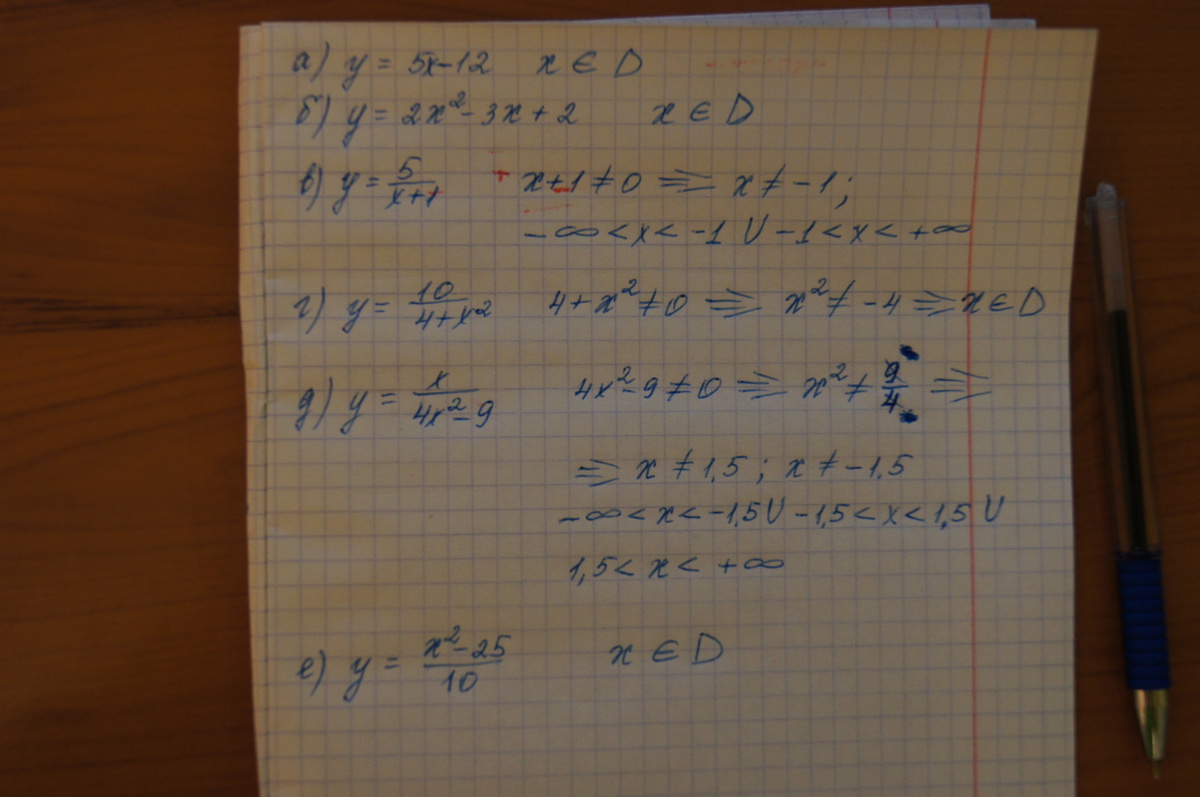 а) y = 5x-12 x ∈ D
б) y = 2x² - 3x + 2 x ∈ D
в) y = 5/(x+1) x+1 ≠ 0 ⇒ x ≠ -1;
-∞ < x < -1 ∪ -1 < x < +∞
г) y = 10/(4+x²) 4+x² ≠ 0 ⇒ x² ≠ -4 ⇒ x ∈ D
д) y = x/(4x²-9) 4x²-9 ≠ 0 ⇒ x² ≠ 9/4 ⇒
⇒ x ≠ 1,5; x ≠ -1,5
-∞ < x < -1,5 ∪ -1,5 < x < 1,5 ∪
1,5 < x < +∞
е) y = (x²-25)/10 x ∈ D